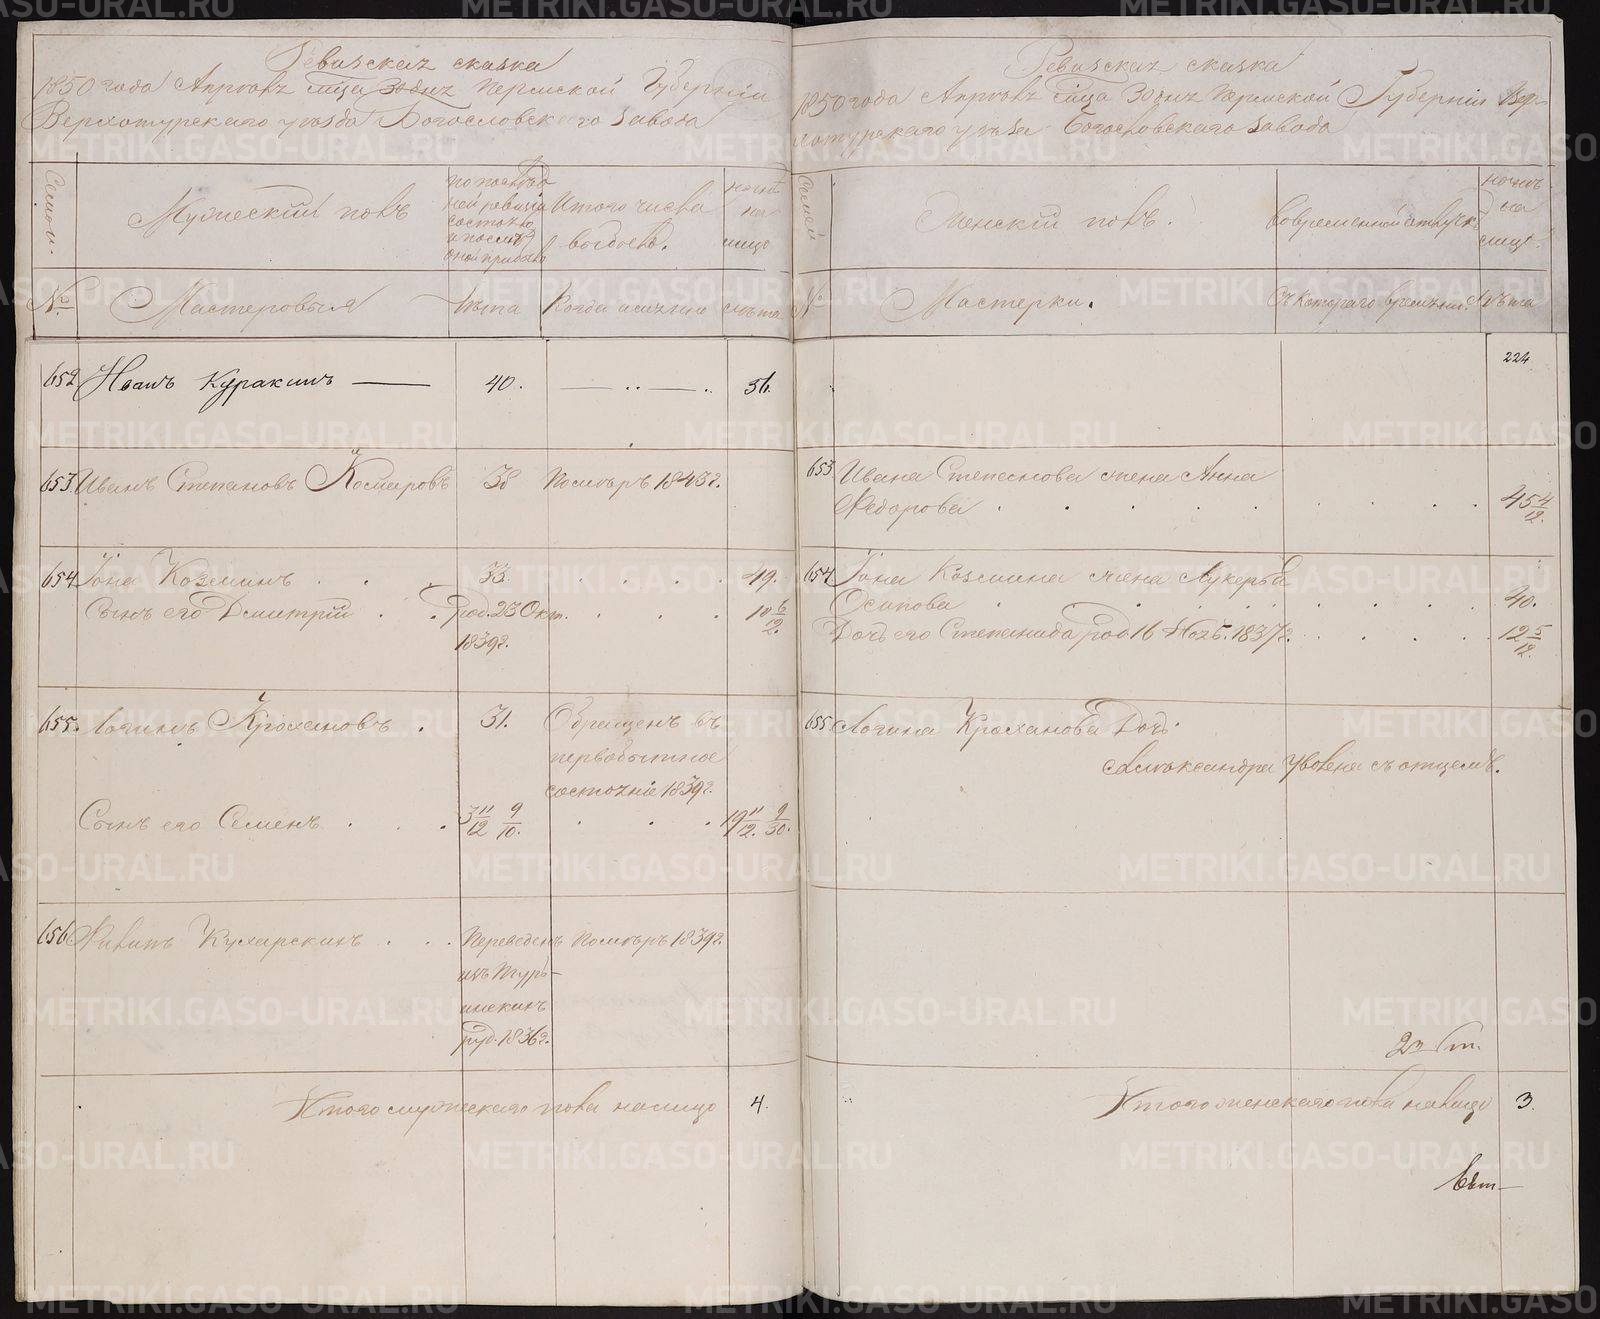 Ревизская сказка
1850 года Апрѣля мца 30 дня Пермской Губерніи
Верхотурскаго уѣзда Богословскаго завода
Семьи.
Мужескій полъ
по послѣдней ревизіи состояло и послѣ оной прибыло
Изтого числа выбыло.
нынѣ на лицо
№
Мастеровыя
Лѣта
Когда именно
Лѣта
652 Иванъ Куракинъ 40. 51.
653 Иванъ Степановъ Комаровъ 38 Померъ 1843 г.
654 Іона Козминъ 33. 49.
Сынъ его Дмитрій род. 23 Окт. 10 6/12.
1839 г.
655. Логинъ Крохановъ 31. Обращенъ въ
первобытное
состояніе 1839 г.
Сынъ его Семенъ 3 11/12 9/10. 19 11/12. 9/30.
656 Филипъ Кухарскихъ Переведенъ Померъ 1839 г.
изъ Турь-
инскихъ
руд. 1836 г.
Итого мужескаго пола налицо 4.
Ревизская сказка
1850 года Апрѣля мца 30 дня Пермской Губерніи Вер-
хотурскаго уѣзда Богословскаго завода
Семьи
Женскій полъ.
Вовременной отлучкѣ
нынѣ на лицо
№
Мастерки.
Съ котораго времени.
Лѣта
224.
653 Ивана Степанова жена Анна
Федорова 45 4/12.
654 Іона Козмина жена Лукерья
Осипова 40.
Дочь его Степанида род 16 Нояб. 1837 г. 12 5/12.
655 Логина Кроханова Дочь
Александра Уволена съ отцемъ.
Итого женскаго пола налицо 3.